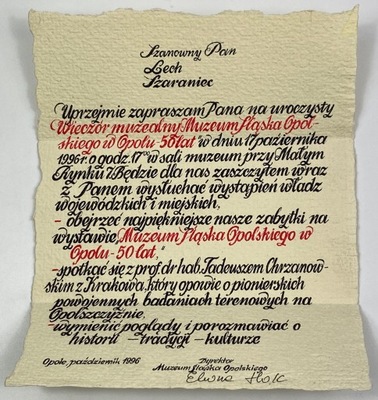 Szanowny Pan
Lech
Szaraniec
Uprzejmie zapraszam Pana na uroczysty
Wieczór muzealny Muzeum Śląska Opol-
skiego w Opolu - 50 lat w dniu 17 października
1996 r. o godz. 17°° w sali muzeum przy Małym
Rynku 7. Będzie dla nas zaszczytem wraz
z Panem wysłuchać wystąpień władz
wojewódzkich i miejskich,
- obejrzeć najpiękniejsze nasze zabytki na
wystawie, "Muzeum Śląska Opolskiego w
Opolu - 50 lat,"
- spotkać się z prof. dr hab. Tadeuszem Chrzanow-
skim z Krakowa, który opowie o pionierskich
powojennych badaniach terenowych na
Opolszczyźnie,
- wymienić poglądy i porozmawiać o
historii - tradycji - kulturze
Opole, październik 1996
Dyrektor
Muzeum Śląska Opolskiego